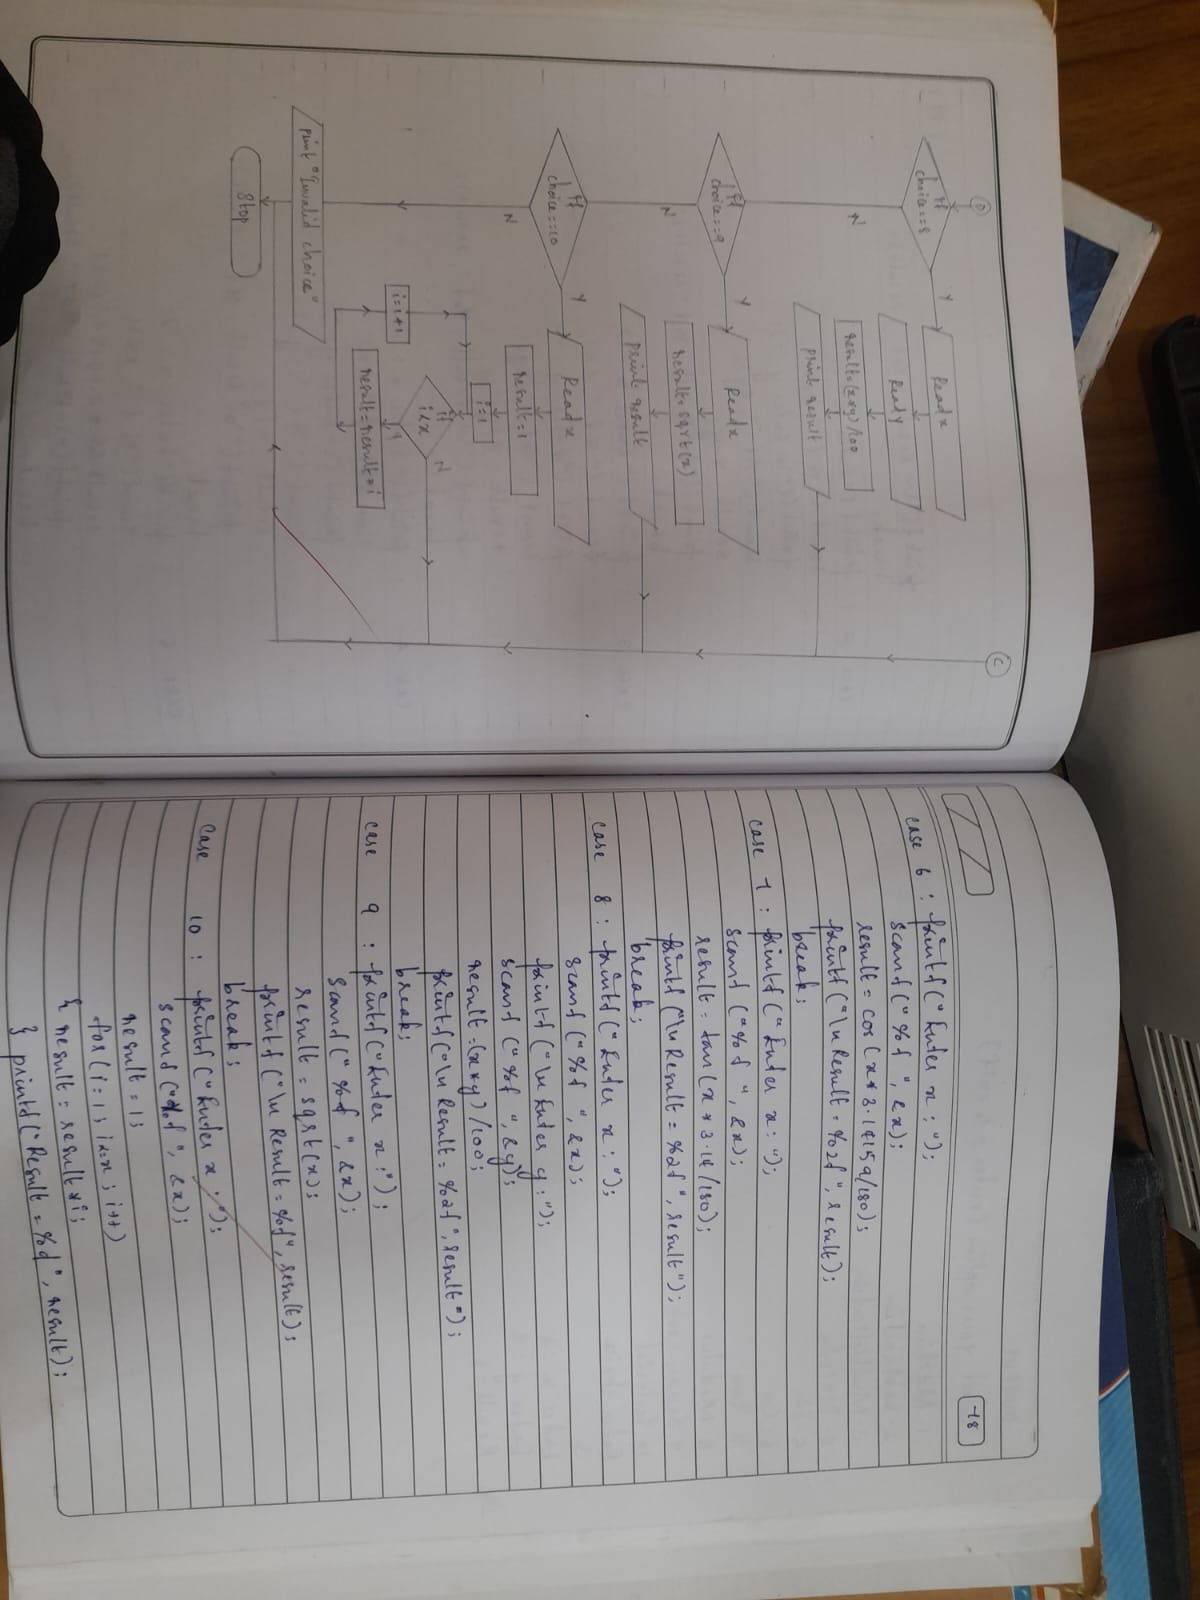 D
C
If
choice==8
Y
N
Read x
Ready
result=(x*y)/100
print result
If
choice==9
Y
N
Read x
result=sqrt(x)
print result
If
choice==10
Y
N
Read x
result=1
i=1
If
i<x
N
Y
i=i+1
result=result*i
print "Invalid choice"
Stop
18
case 6 : printf("Enter x : ");
scanf("%f", &x);
result = cos(x*3.14159/180);
printf("\n Result = %2f", result);
break;
case 7 : printf("Enter x : ");
scanf("%f", &x);
result = tan(x*3.14/180);
printf("\n Result = %2f", result");
break;
case 8 : printf("Enter x : ");
scanf("%f", &x);
printf("\n Enter y : ");
scanf("%f", &y);
result=(x*y)/100;
printf("\n Result = %2f", result");
break;
case 9 : printf("Enter x : ");
scanf("%f", &x);
result = sqrt(x);
printf("\n Result = %f", result);
break;
case 10 : printf("Enter x : ");
scanf("%f", &x);
result = 1;
for(i=1; i<=x; i++)
{ result = result*i;
} printf("Result = %d", result);